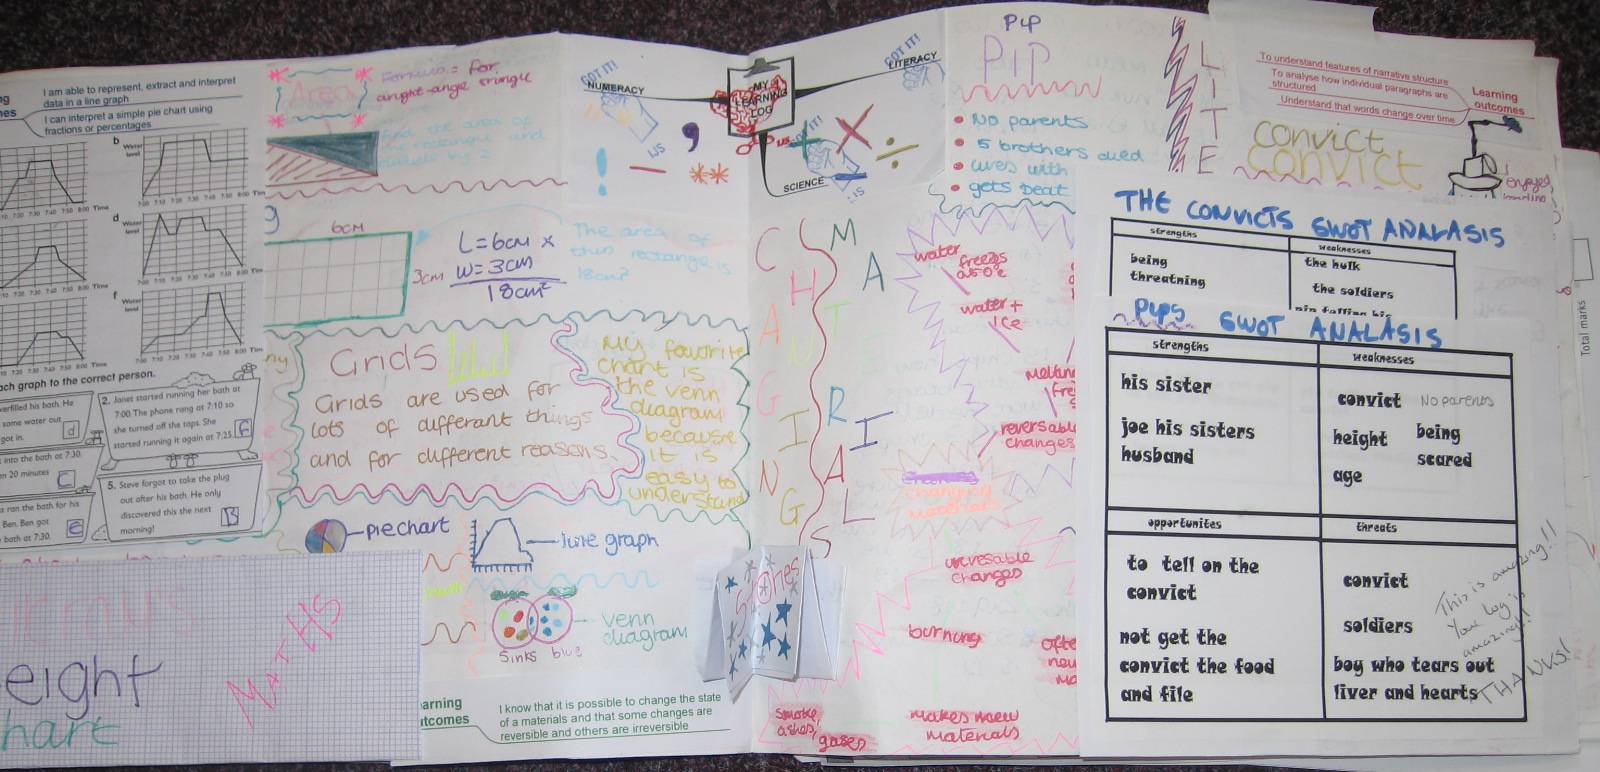 I am able to represent, extract and interpret
data in a line graph
I can interpret a simple pie chart using
fractions or percentages
b
Water
level
d
Water
level
f
Water
level
7:00 7:10 7:20 7:30 7:40 7:50 8:00 Time
ach graph to the correct person.
verfilled his bath. He
some water out
got in.
d
2. Janet started running her bath at
7:00. The phone rang at 7:10 so
she turned off the taps. She
started running it again at 7:25.
F
into the bath at 7:30.
en 20 minutes
C
a ran the bath for his
Ben. Ben got
bath at 7:30.
E
5. Steve forgot to take the plug
out after his bath. He only
discovered this the next
morning!
B
eight
hart
MATHS
Area
Formula = for
aright-angle triangle
find the area of
the rectangle and
divide by 2
6cm
3cm
L=6cm x
W=3cm
18cm²
The area of
this rectangle is
18cm²
Grids
Grids are used for
lots of differant things
and for different reasons.
My favorite
chart is
the venn
diagram
because
it is
easy to
understand
piechart
line graph
venn
diagram
sinks
blue
arning
tcomes
I know that it is possible to change the state
of a materials and that some changes are
reversible and others are irreversible
GOT IT!
NUMERACY
MY
LEARNING
LOG
GOT IT!
LITERACY
GOT IT!
SCIENCE
CHANGING
MATERIALS
water
freezes
at 0°c
water +
Ice
reversable
changes
changing
materials
irreversable
changes
burning
smoke,
ashes,
gases
makes new
materials
PIP
PIP
No parents
5 brothers died
lives with
gets beat
LITE
To understand features of narrative structure
To analyse how individual paragraphs are
structured
Understand that words change over time
Learning
outcomes
convict
convict
I
enjoyed
THE CONVICTS SWOT ANALASIS
strengths
weaknesses
being
threatning
the hulk
the soldiers
Pips SWOT ANALASIS
strengths
weaknesses
his sister
joe his sisters
husband
convict
No parents
height
being
scared
age
opportunites
threats
to tell on the
convict
not get the
convict the food
and file
convict
soldiers
boy who tears out
liver and hearts
This is amazing!!
Your log is
amazing!!
THANKS!
Total marks